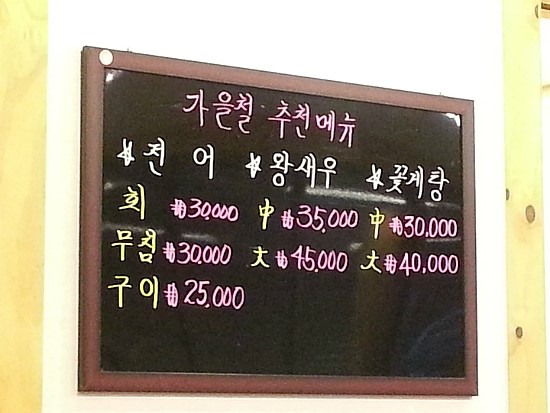 가을철 추천메뉴
※전어 ※왕새우 ※꽃게탕
회 ₩30000 中 ₩35,000 中 ₩30,000
무침 ₩30000 大 ₩45,000 大 ₩40,000
구이 ₩25,000